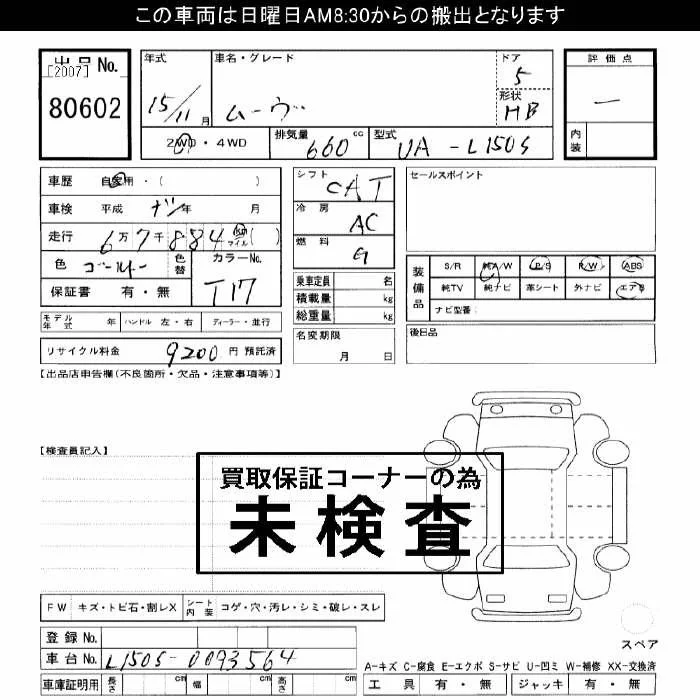 この車両は日曜日AM8:30からの搬出となります
出品No.
[2007]
80602
年式
15/11月
車名・グレード
ムーヴ
ドア
5
形状
HB
評価点
―
内装
2WD・4WD
排気量
660cc
型式
UA-L150S
車歴 自家用・( )
車検 平成 ナシ 年 月
走行 6万7千884 km マイル ( )
色 ゴールド
色替
カラーNo.
T17
保証書 有・無
シフト
CAT
冷房
AC
燃料
G
セールスポイント
乗車定員 名
積載量 kg
総重量 kg
装備品
S/R 純A/W P/S P/W ABS
純TV 純ナビ 革シート 外ナビ エアB
ナビ型番:
モデル年式 年 ハンドル 左・右 ディーラー・並行
名変期限
月 日
後日品
リサイクル料金 9200 円 預託済
【出品店申告欄(不良箇所・欠品・注意事項等)】
【検査員記入】
買取保証コーナーの為
未検査
FW キズ・トビ石・割レX
シート内装 コゲ・穴・汚レ・シミ・破レ・スレ
スペア
登録No.
車台No. L150S-0093564
車庫証明用 長さ cm 幅 cm 高さ cm
A-キズ C-腐食 E-エクボ S-サビ U-凹ミ W-補修 XX-交換済
工具 有・無 ジャッキ 有・無